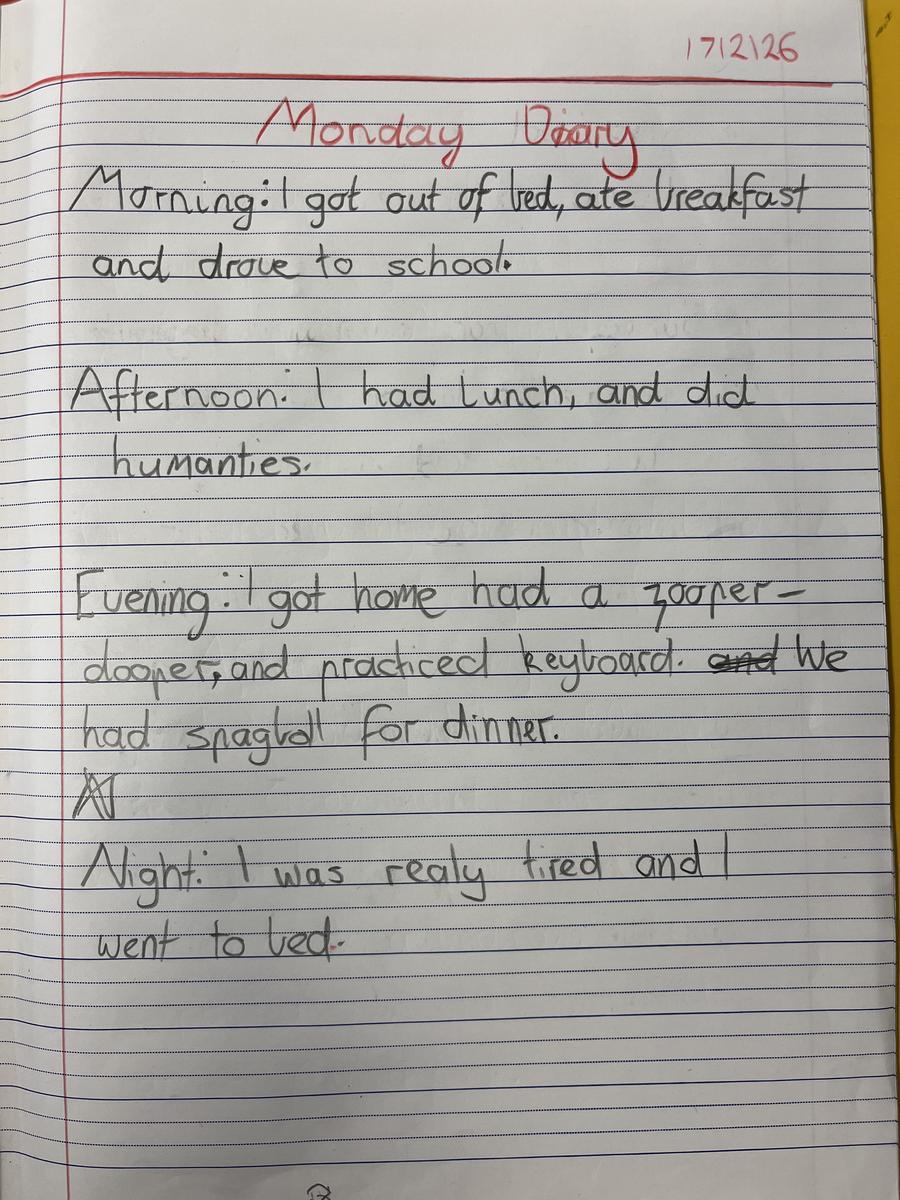 17/2/26
Monday Diary
Morning: I got out of bed, ate breakfast
and drove to school.
Afternoon: I had Lunch, and did
humanties.
Evening: I got home had a zooper-
dooper, and practiced keyboard. and We
had spagboll for dinner.
Night: I was realy tired and I
went to bed.